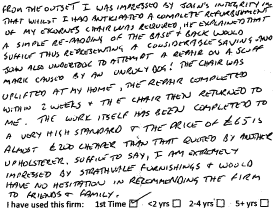 FROM THE OUTSET I WAS IMPRESSED BY JOHN'S INTEGRITY IN
THAT WHILST I HAD ANTICIPATED A COMPLETE REFURBISHMENT
OF MY EKORNES CHAIR WAS REQUIRED, HE EXPLAINED THAT
A SIMPLE RE-PADDING OF THE BASE & BACK WOULD
SUFFICE THUS REPRESENTING A CONSIDERABLE SAVINGS. AND
JOHN ALSO UNDERTOOK TO ATTEMPT A REPAIR ON A SCUFF
MARK CAUSED BY AN UNRULY DOG! THE CHAIR WAS
UPLIFTED AT MY HOME, THE REPAIR COMPLETED
WITHIN 2 WEEKS & THE CHAIR THEN RETURNED TO
ME. THE WORK ITSELF HAS BEEN COMPLETED TO
A VERY HIGH STANDARD & THE PRICE OF £65 IS
ALMOST £200 CHEAPER THAN THAT QUOTED BY ANOTHER
UPHOLSTERER. SUFFICE TO SAY, I AM EXTREMELY
IMPRESSED BY STRATHVALE FURNISHINGS & WOULD
HAVE NO HESITATION IN RECOMMENDING THE FIRM
TO FRIENDS & FAMILY.
I have used this firm: 1st Time <2 yrs 2-4 yrs 5+ yrs